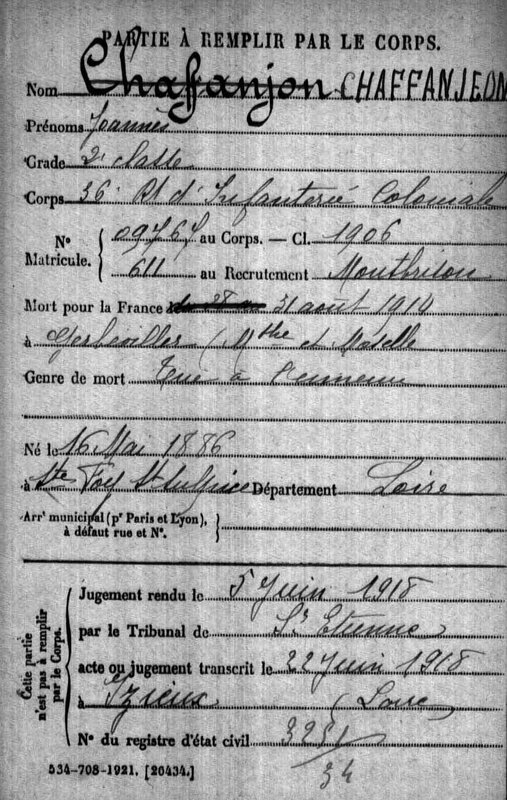 PARTIE À REMPLIR PAR LE CORPS.
Nom Chaffanjon CHAFFANJEON
Prénoms Joannès
Grade 2e classe
Corps 36e Rt d'Infanterie Coloniale
N° Matricule. { 09767 au Corps. — Cl. 1906
611 au Recrutement Montbrison
Mort pour la France le 31 août 1914
à Gerbeviller (Mthe et Moselle
Genre de mort Tué à l'ennemi
Né le 16 Mai 1886
à Ste Foy St Sulpice Département Loire
Arrt municipal (pr Paris et Lyon),
à défaut rue et N°. }
Cette partie n'est pas à remplir par le Corps.
Jugement rendu le 5 Juin 1918
par le Tribunal de St Etienne
acte ou jugement transcrit le 22 Juin 1918
à Izieux (Loire)
N° du registre d'état civil
34
534-708-1921. [20434.]